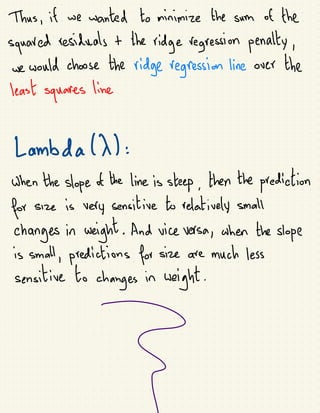 Thus, if we wanted to minimize the sum of the
squared residuals + the ridge regression penalty,
we would choose the ridge regression line over the
least squares line
Lambda (λ):
When the slope of the line is steep, then the prediction
for size is very sensitive to relatively small
changes in weight. And vice versa, when the slope
is small, predictions for size are much less
sensitive to changes in weight.